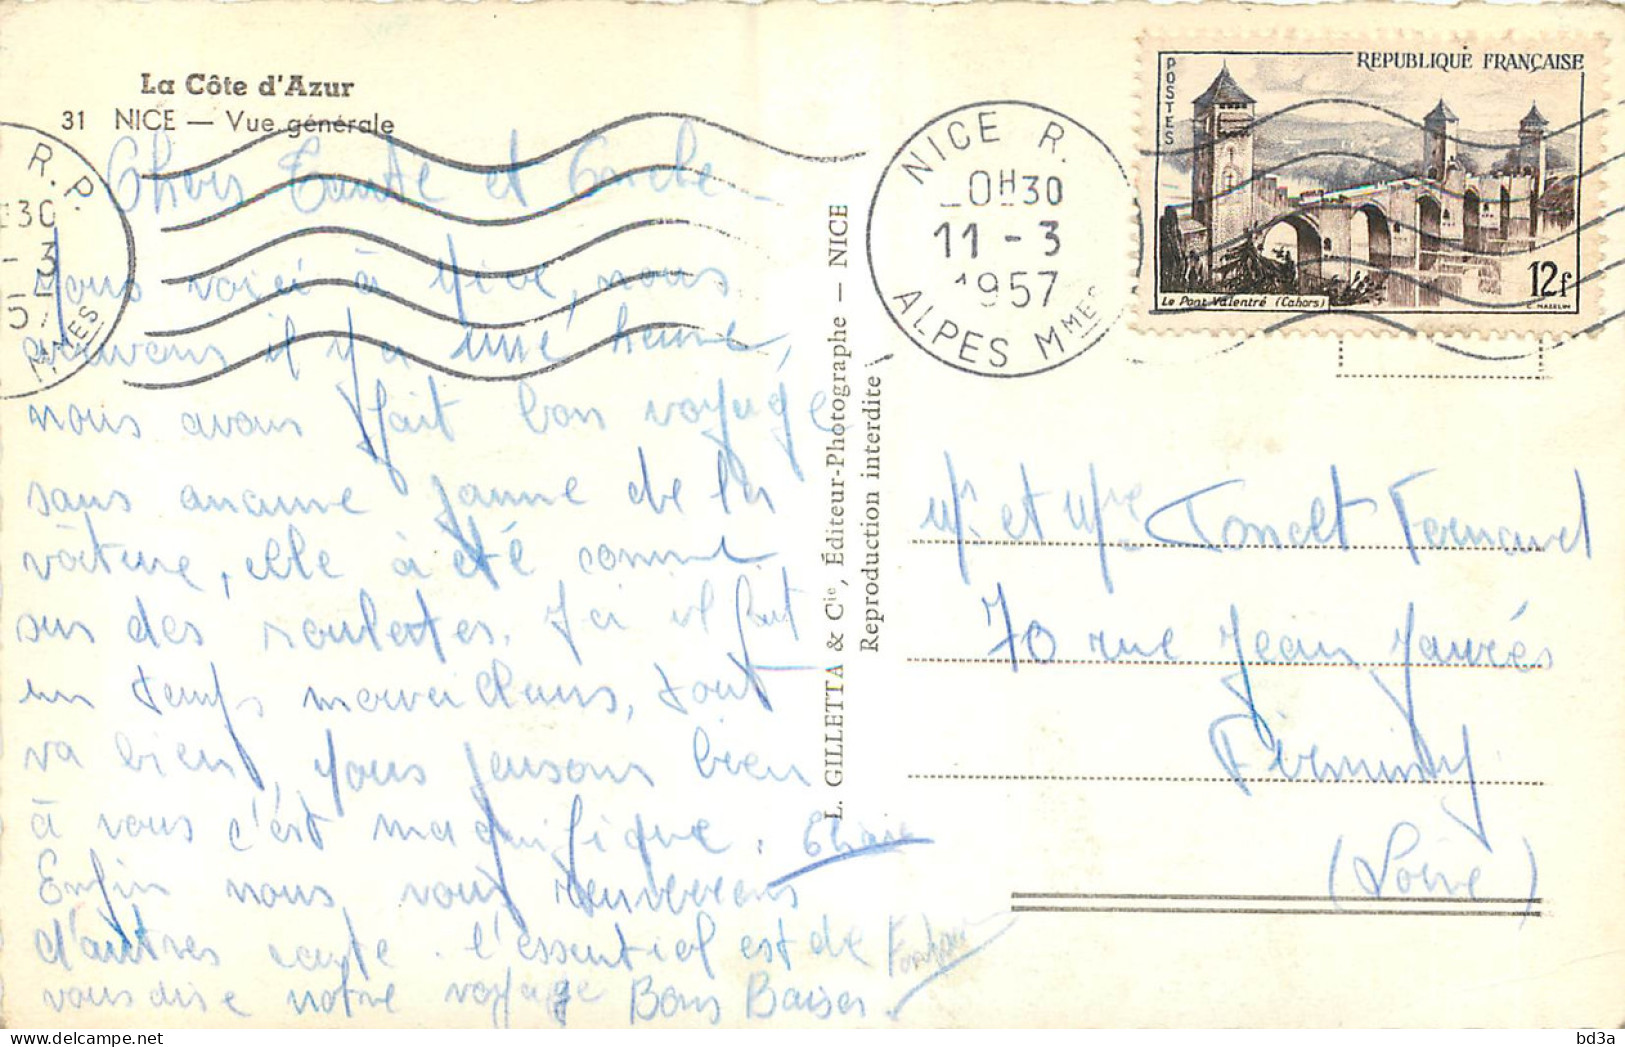 La Côte d'Azur
31 NICE — Vue générale
Chers Tante et
Nous voici à Nice, nous
il y a une heure,
nous avons fait bon voyage
sans aucune panne de la
voiture, elle à été comme
sur des roulettes. Ici il fait
un temps merveilleux, tout
va bien, nous pensons bien
à vous c'est magnifique.
Enfin nous vous renverrons
d'autres carte. l'essentiel est de
vous dire notre voyage Bons Baisers.
L. GILLETTA & Cie, Éditeur-Photographe — NICE
Reproduction interdite
R.P.
30
- 3
5
MMES
NICE R.P.
0H30
11 - 3
1957
ALPES MMES
REPUBLIQUE FRANÇAISE
POSTES
12f
Le Pont Valentré (Cahors)
C. MAZELIN
Mr et Mme Fernand
70 rue Jean Jaurés
Firminy
(Loire)
bd3a